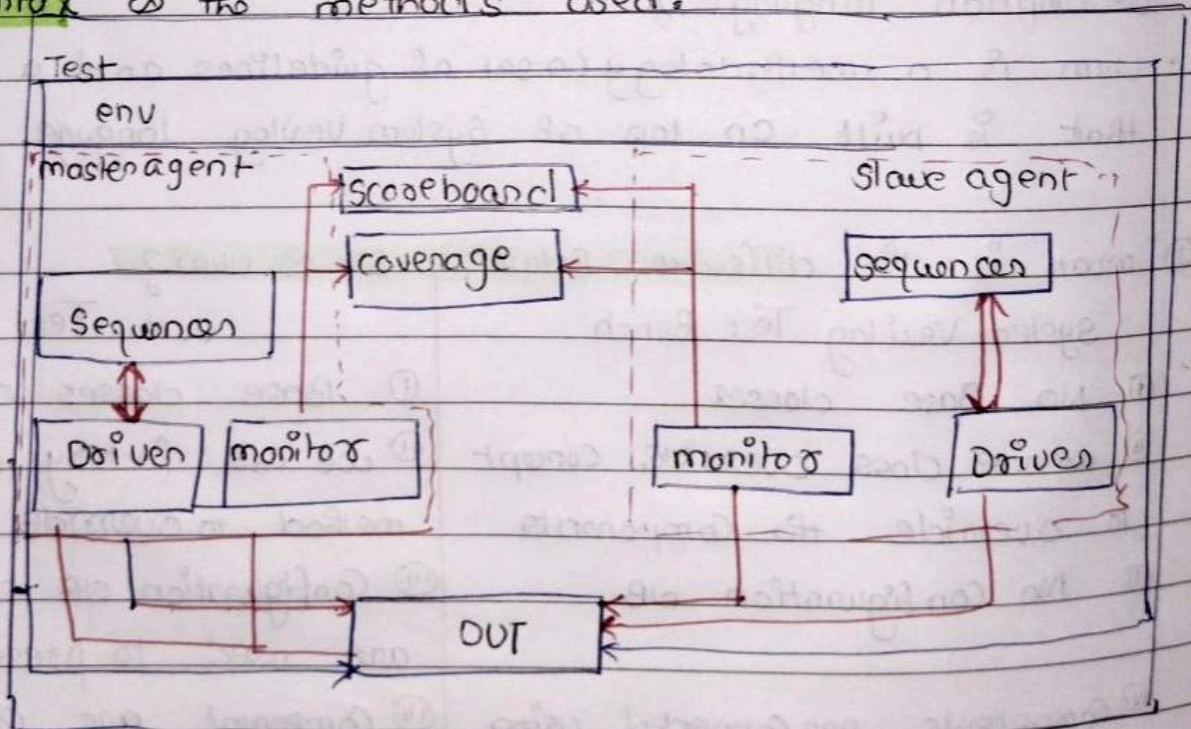 of the methods used.
Test
env
master agent
scoreboard
slave agent
coverage
sequencer
Sequencer
Driver
monitor
monitor
Driver
DUT